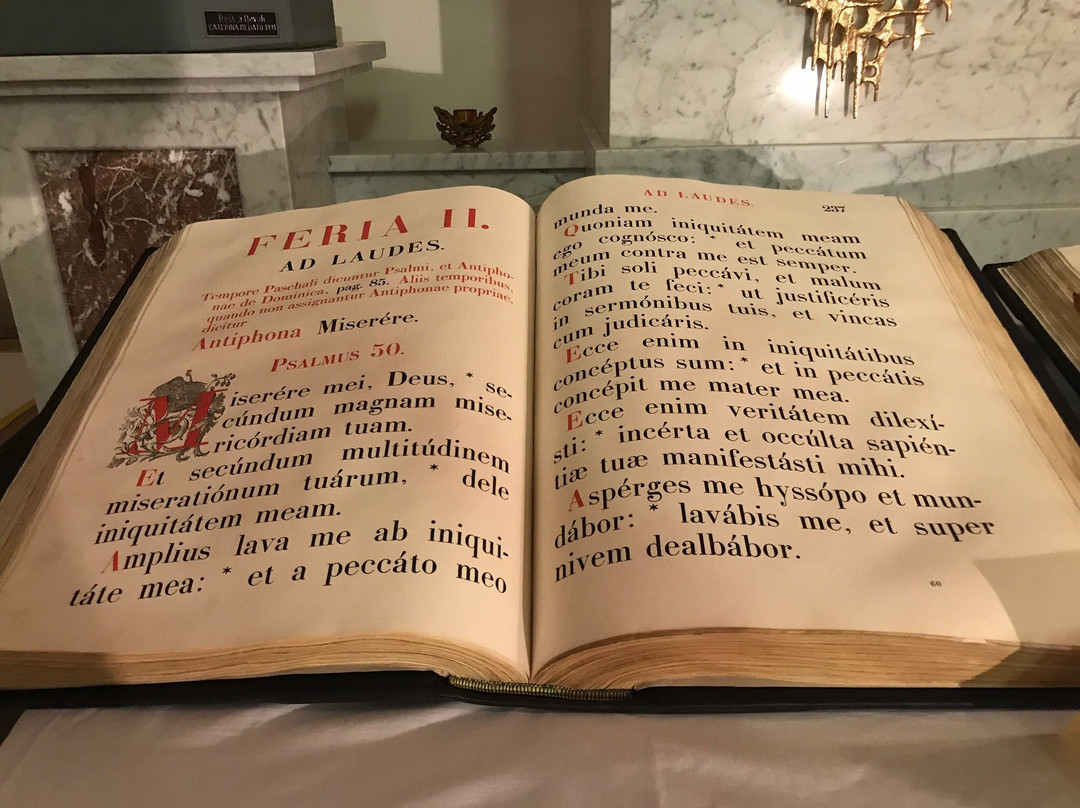 CATERINA DEDATO 1991
FERIA II.
AD LAUDES.
Tempore Paschali dicuntur Psalmi, et Antipho-
nae de Dominica, pag. 85. Aliis temporibus,
quando non assignantur Antiphonae propriae,
dicitur
Antiphona Miserére.
PSALMUS 50.
Miserére mei, Deus, * se-
cúndum magnam mise-
ricórdiam tuam.
Et secúndum multitúdinem
miseratiónum tuárum, * dele
iniquitátem meam.
Amplius lava me ab iniqui-
táte mea: * et a peccáto meo
AD LAUDES. 237
munda me.
Quoniam iniquitátem meam
ego cognósco: * et peccátum
meum contra me est semper.
Tibi soli peccávi, et malum
coram te feci: * ut justificéris
in sermónibus tuis, et vincas
cum judicáris.
Ecce enim in iniquitátibus
concéptus sum: * et in peccátis
concépit me mater mea.
Ecce enim veritátem dilexí-
sti: * incérta et occúlta sapién-
tiæ tuæ manifestásti mihi.
Aspérges me hyssópo et mun-
dábor: * lavábis me, et super
nivem dealbábor.
60